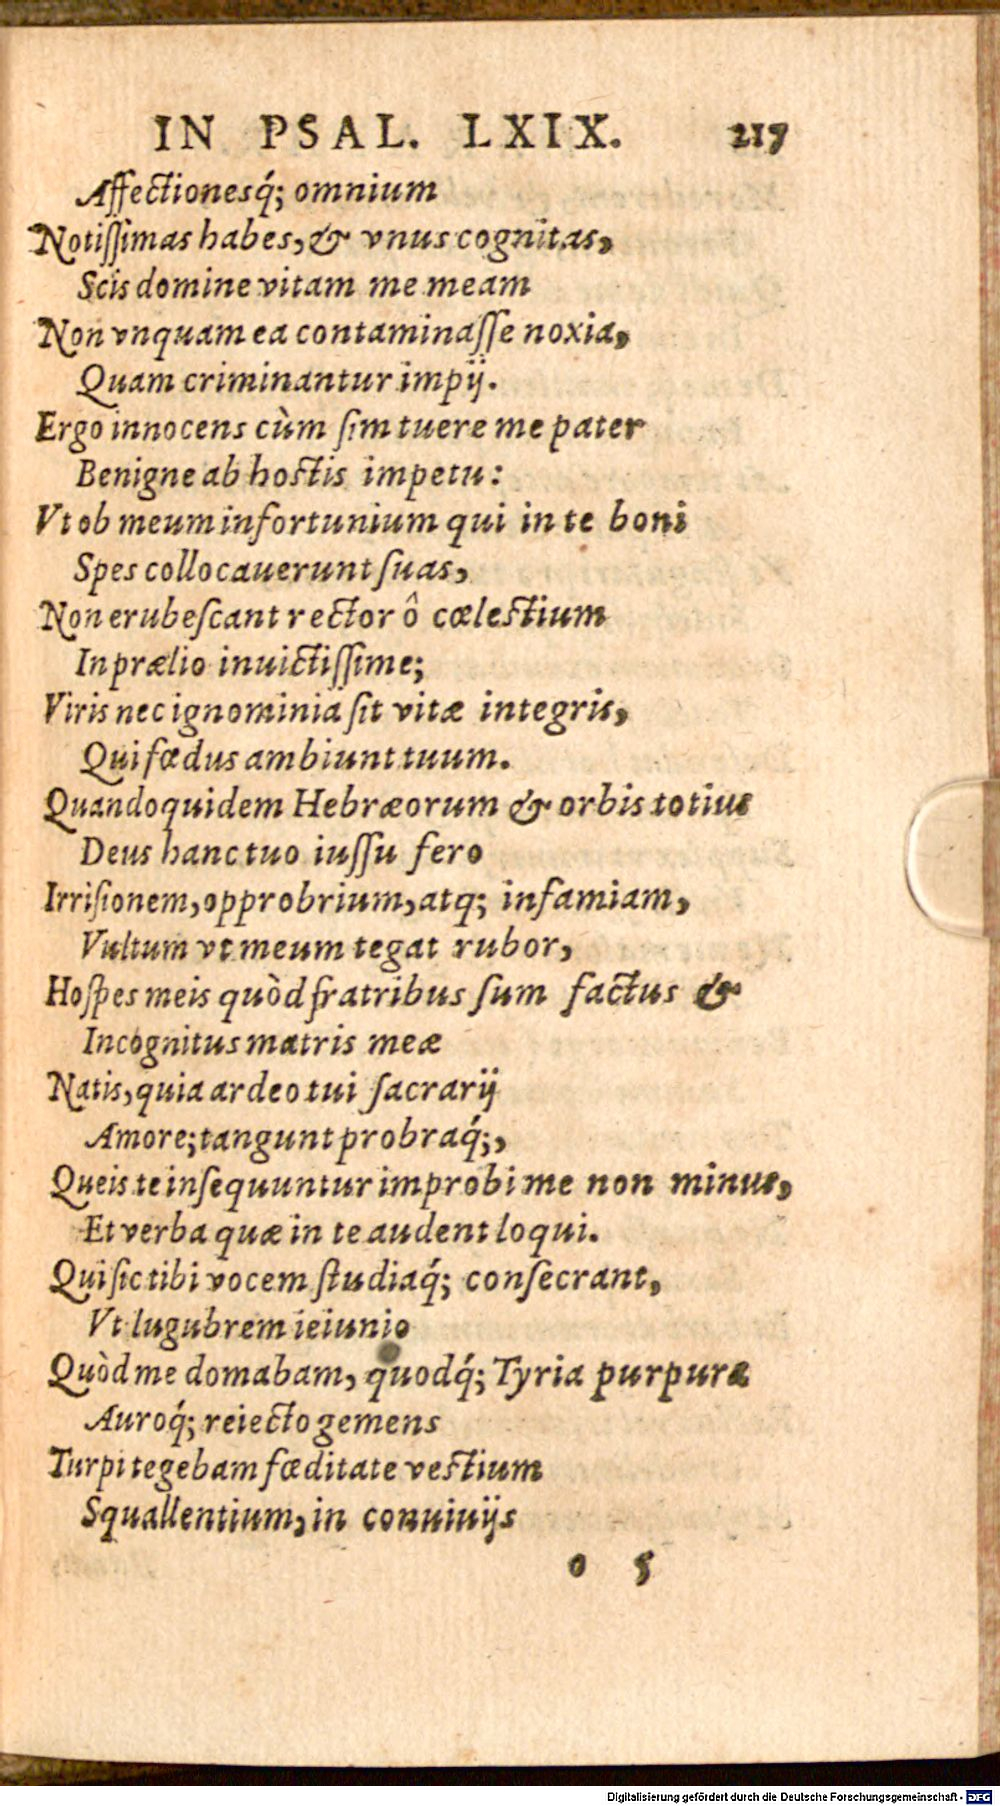 IN PSAL. LXIX. 217
Affectionesq́; omnium
Notißimas habes, & vnus cognitas,
Scis domine vitam me meam
Non vnquam ea contaminaſſe noxia,
Quam criminantur impij.
Ergo innocens cùm ſim tuere me pater
Benigne ab hostis impetu:
Vt ob meum infortunium qui in te boni
Spes collocauerunt ſuas,
Non erubeſcant rector ô cœlestium
In prælio inuictißime;
Viris nec ignominia ſit vitæ integris,
Qui fœdus ambiunt tuum.
Quandoquidem Hebræorum & orbis totius
Deus hanc tuo iuſſu fero
Irriſionem, opprobrium, atq; infamiam,
Vultum vt meum tegat rubor,
Hoſpes meis quòd fratribus ſum factus &
Incognitus matris meæ
Natis, quia ardeo tui ſacrarij
Amore; tangunt probraq́;,
Queis te inſequuntur improbi me non minus,
Et verba quæ in te audent loqui.
Qui ſic tibi vocem ſtudiaq́; conſecrant,
Vt lugubrem ieiunio
Quòd me domabam, quodq́; Tyria purpura
Auroq́; reiecto gemens
Turpi tegebam fœditate vestium
Squallentium, in conuiuijs
o 5
Digitalisierung gefördert durch die Deutsche Forschungsgemeinschaft - DFG